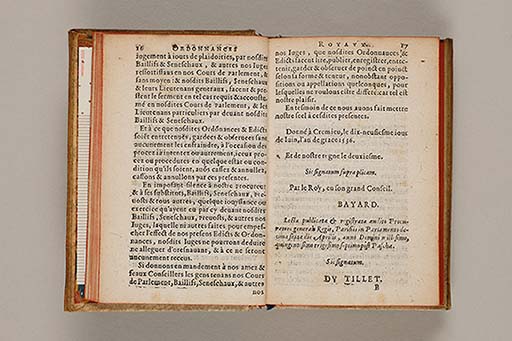 16 ORDONNANCES
iugement à iours de plaidoiries, par nosdits
Baillifs & Seneschaux, & autres nos Iuges
ressortissans en nos Cours de Parlement, &
sans moyen: & nosdits Baillifs, Seneschaux,
& leurs Lieutenans generaux, facent & prestent
le serment en tel cas requis & accoustumé
en nosdites Cours de Parlement, & les
Lieutenans particuliers par deuant nosdits
Baillifs & Seneschaux.
Et à ce que nosdites Ordonnances & Edicts
soiét entretenuës, gardees & obseruees sans
aucunement les enfraindre, à l'occasion des
procez à intenter ou autrement, iceux procez
ou procedures en quelque estat ou condition
qu'ils soient, auōs cassez & annullez,
cassons & annullons par ces presentes.
En imposant silence à nostre procureur
& à ses substituts, Baillifs, Preuosts, Seneschaux
& tous autres, quelque iouyssance ou
exercice qu'ayent eu par cy deuant nosdits
Baillifs, Seneschaux, Preuosts, & autres nos
Iuges, laquelle ne autres faits, pour empescher
l'effect de nos presens Edicts & Ordonnances,
nosdits Iuges ne pourront deduire
ne alleguer d'oresnauant, & à ce ne seront
aucunement receus.
Si donnons en mandement à nos amez &
feaux Conseillers les gens tenans nos Cours
de Parlement, Baillifs, Seneschaux, & autres
nos
ROYAUX. 17
nos Iuges, que nosdites Ordonnances &
Edicts facent lire, publier, enregistrer, entretenir,
garder & obseruer de poinct en poinct
selon sa forme & teneur, nonobstant oppositions
ou appellations quelconques, pour
lesquelles ne voulons estre differé: car tel est
nostre plaisir.
En tesmoin de ce nous auons fait mettre
nostre seel à cesdites presentes.
Donné à Cremieu, le dix-neufiesme iour
de Iuin, l'an de grace 1536.
Et de nostre regne le deuxiesme.
Sic signatum supra plicam.
Par le Roy, en son grand Conseil.
BAYARD.
Lecta publicata & registrata audito Procuratore
generali Regis, Parisiis in Parlamento
decima septima die Aprilis, anno Domini millesimo,
quingentesimo trigesimo septimo post Pascha.
Sic signatum.
DV TILLET.
B